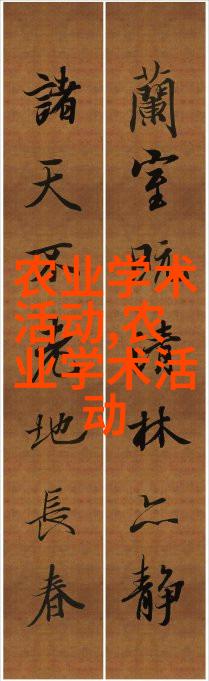 蘭室林靜
諸天不老地長春
农业学术
活动,农
业学术活
动